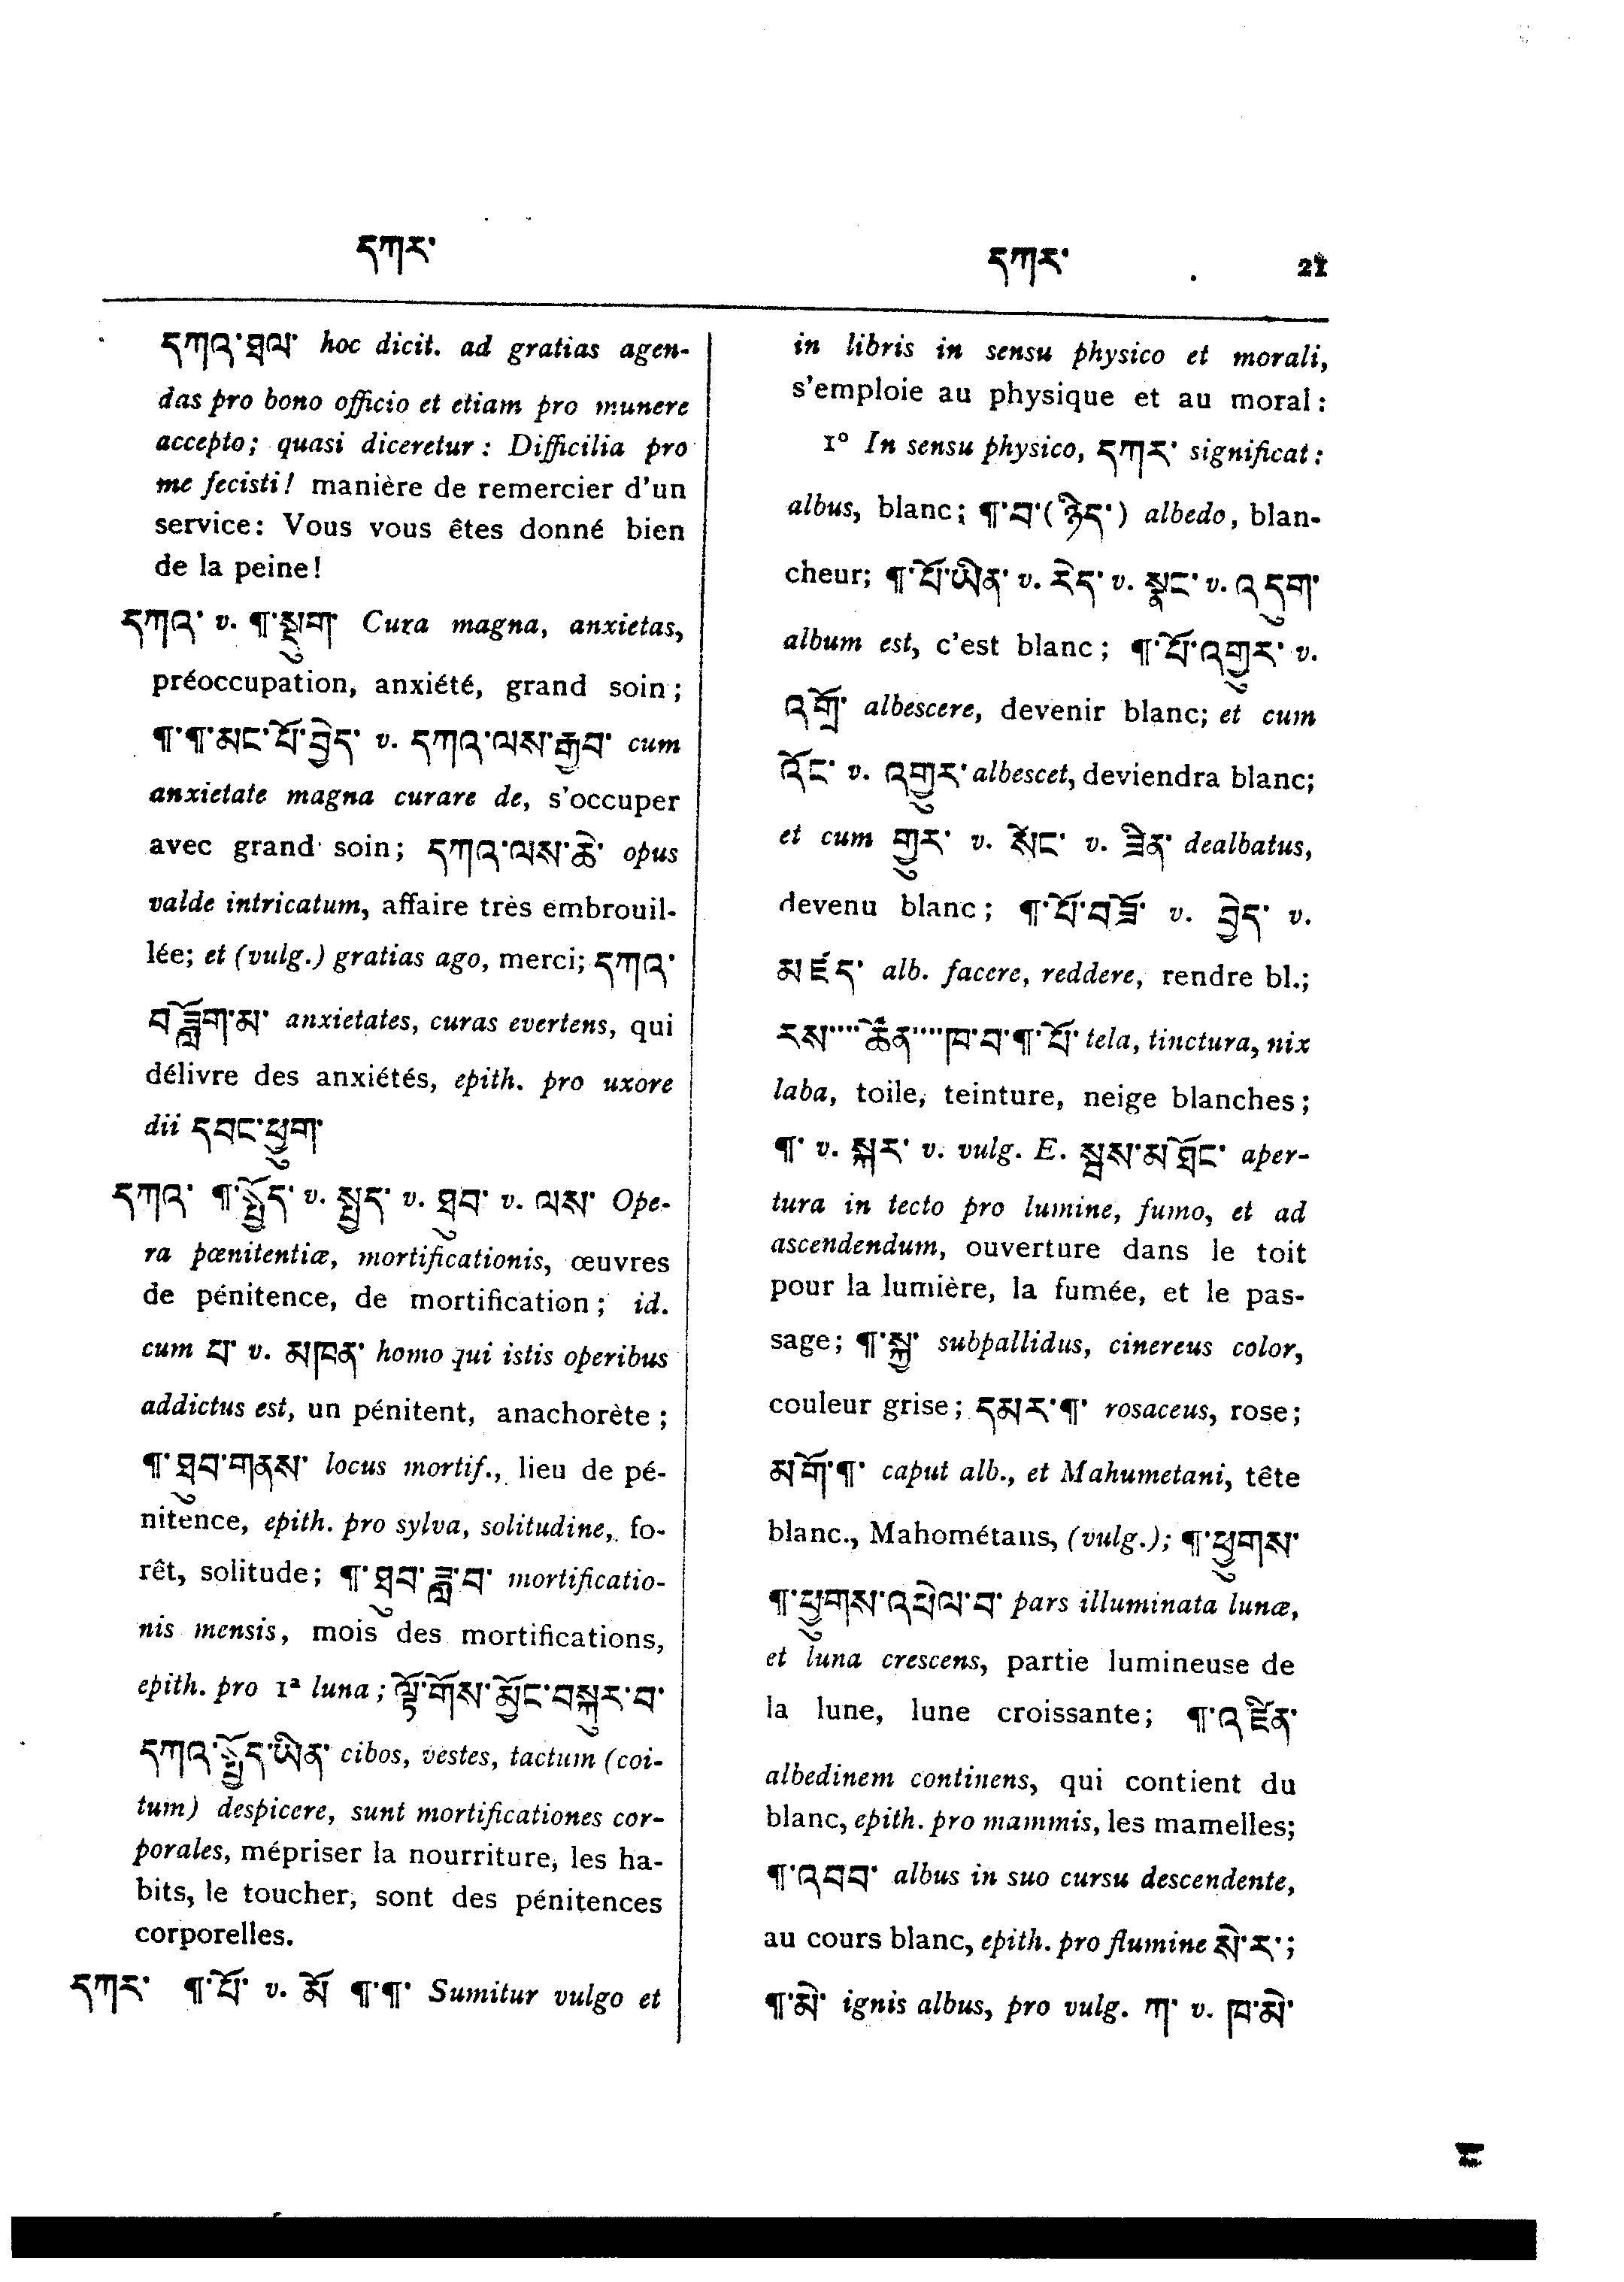 དཀར་
དཀར་ 21
དཀའ་ཐལ་ hoc dicit. ad gratias agen-
das pro bono officio et etiam pro munere
accepto; quasi diceretur: Difficilia pro
me fecisti! manière de remercier d'un
service: Vous vous êtes donné bien
de la peine!
དཀའ་ v. ¶་སྡུག་ Cura magna, anxietas,
préoccupation, anxiété, grand soin;
¶་¶་མང་པོ་བྱེད་ v. དཀའ་ལས་རྒྱབ་ cum
anxietate magna curare de, s'occuper
avec grand soin; དཀའ་ལས་ཆེ་ opus
valde intricatum, affaire très embrouil-
lée; et (vulg.) gratias ago, merci; དཀའ་
བཟློག་མ་ anxietates, curas evertens, qui
délivre des anxiétés, epith. pro uxore
dii དབང་ཕྱུག་
དཀའ་ ¶་སྤྱོད་ v. སྤྱད་ v. ཐུབ་ v. ལས་ Ope-
ra pœnitentiæ, mortificationis, œuvres
de pénitence, de mortification; id.
cum པ་ v. མཁན་ homo qui istis operibus
addictus est, un pénitent, anachorète;
¶་ཐུབ་གནས་ locus mortif., lieu de pé-
nitence, epith. pro sylva, solitudine, fo-
rêt, solitude; ¶་ཐུབ་ཟླ་བ་ mortificatio-
nis mensis, mois des mortifications,
epith. pro 1ª luna; ལྟོ་གོས་མྱོང་བསྐུར་བ་
དཀའ་སྤྱོད་ཡིན་ cibos, vestes, tactum (coi-
tum) despicere, sunt mortificationes cor-
porales, mépriser la nourriture, les ha-
bits, le toucher, sont des pénitences
corporelles.
དཀར་ ¶་པོ་ v. མོ ¶་¶་ Sumitur vulgo et
in libris in sensu physico et morali,
s'emploie au physique et au moral:
1º In sensu physico, དཀར་ significat:
albus, blanc; ¶་བ་(ཉིད་) albedo, blan-
cheur; ¶་པོ་ཡིན་ v. རེད་ v. སྣང་ v. འདུག་
album est, c'est blanc; ¶་པོ་འགྱུར་ v.
འགྲོ་ albescere, devenir blanc; et cum
འོང་ v. འགྱུར་ albescet, deviendra blanc;
et cum གྱུར་ v. སོང་ v. ཟིན་ dealbatus,
devenu blanc; ¶་པོ་བཟོ་ v. བྱེད་ v.
མཛད་ alb. facere, reddere, rendre bl.;
རས་····ཚོན་····ཁ་བ་¶་པོ་ tela, tinctura, nix
laba, toile, teinture, neige blanches;
¶་ v. སྐར་ v. vulg. E. སྦས་མཐོང་ aper-
tura in tecto pro lumine, fumo, et ad
ascendendum, ouverture dans le toit
pour la lumière, la fumée, et le pas-
sage; ¶་སྐྱ་ subpallidus, cinereus color,
couleur grise; དམར་¶་ rosaceus, rose;
མགོ་¶་ caput alb., et Mahumetani, tête
blanc., Mahométans, (vulg.); ¶་ཕྱུགས་
¶་ཕྱུགས་འཕེལ་བ་ pars illuminata lunæ,
et luna crescens, partie lumineuse de
la lune, lune croissante; ¶་འཛིན་
albedinem continens, qui contient du
blanc, epith. pro mammis, les mamelles;
¶་འབབ་ albus in suo cursu descendente,
au cours blanc, epith. pro flumine སེ་ར་;
¶་མེ་ ignis albus, pro vulg. ཀ་ v. ཁ་མེ་